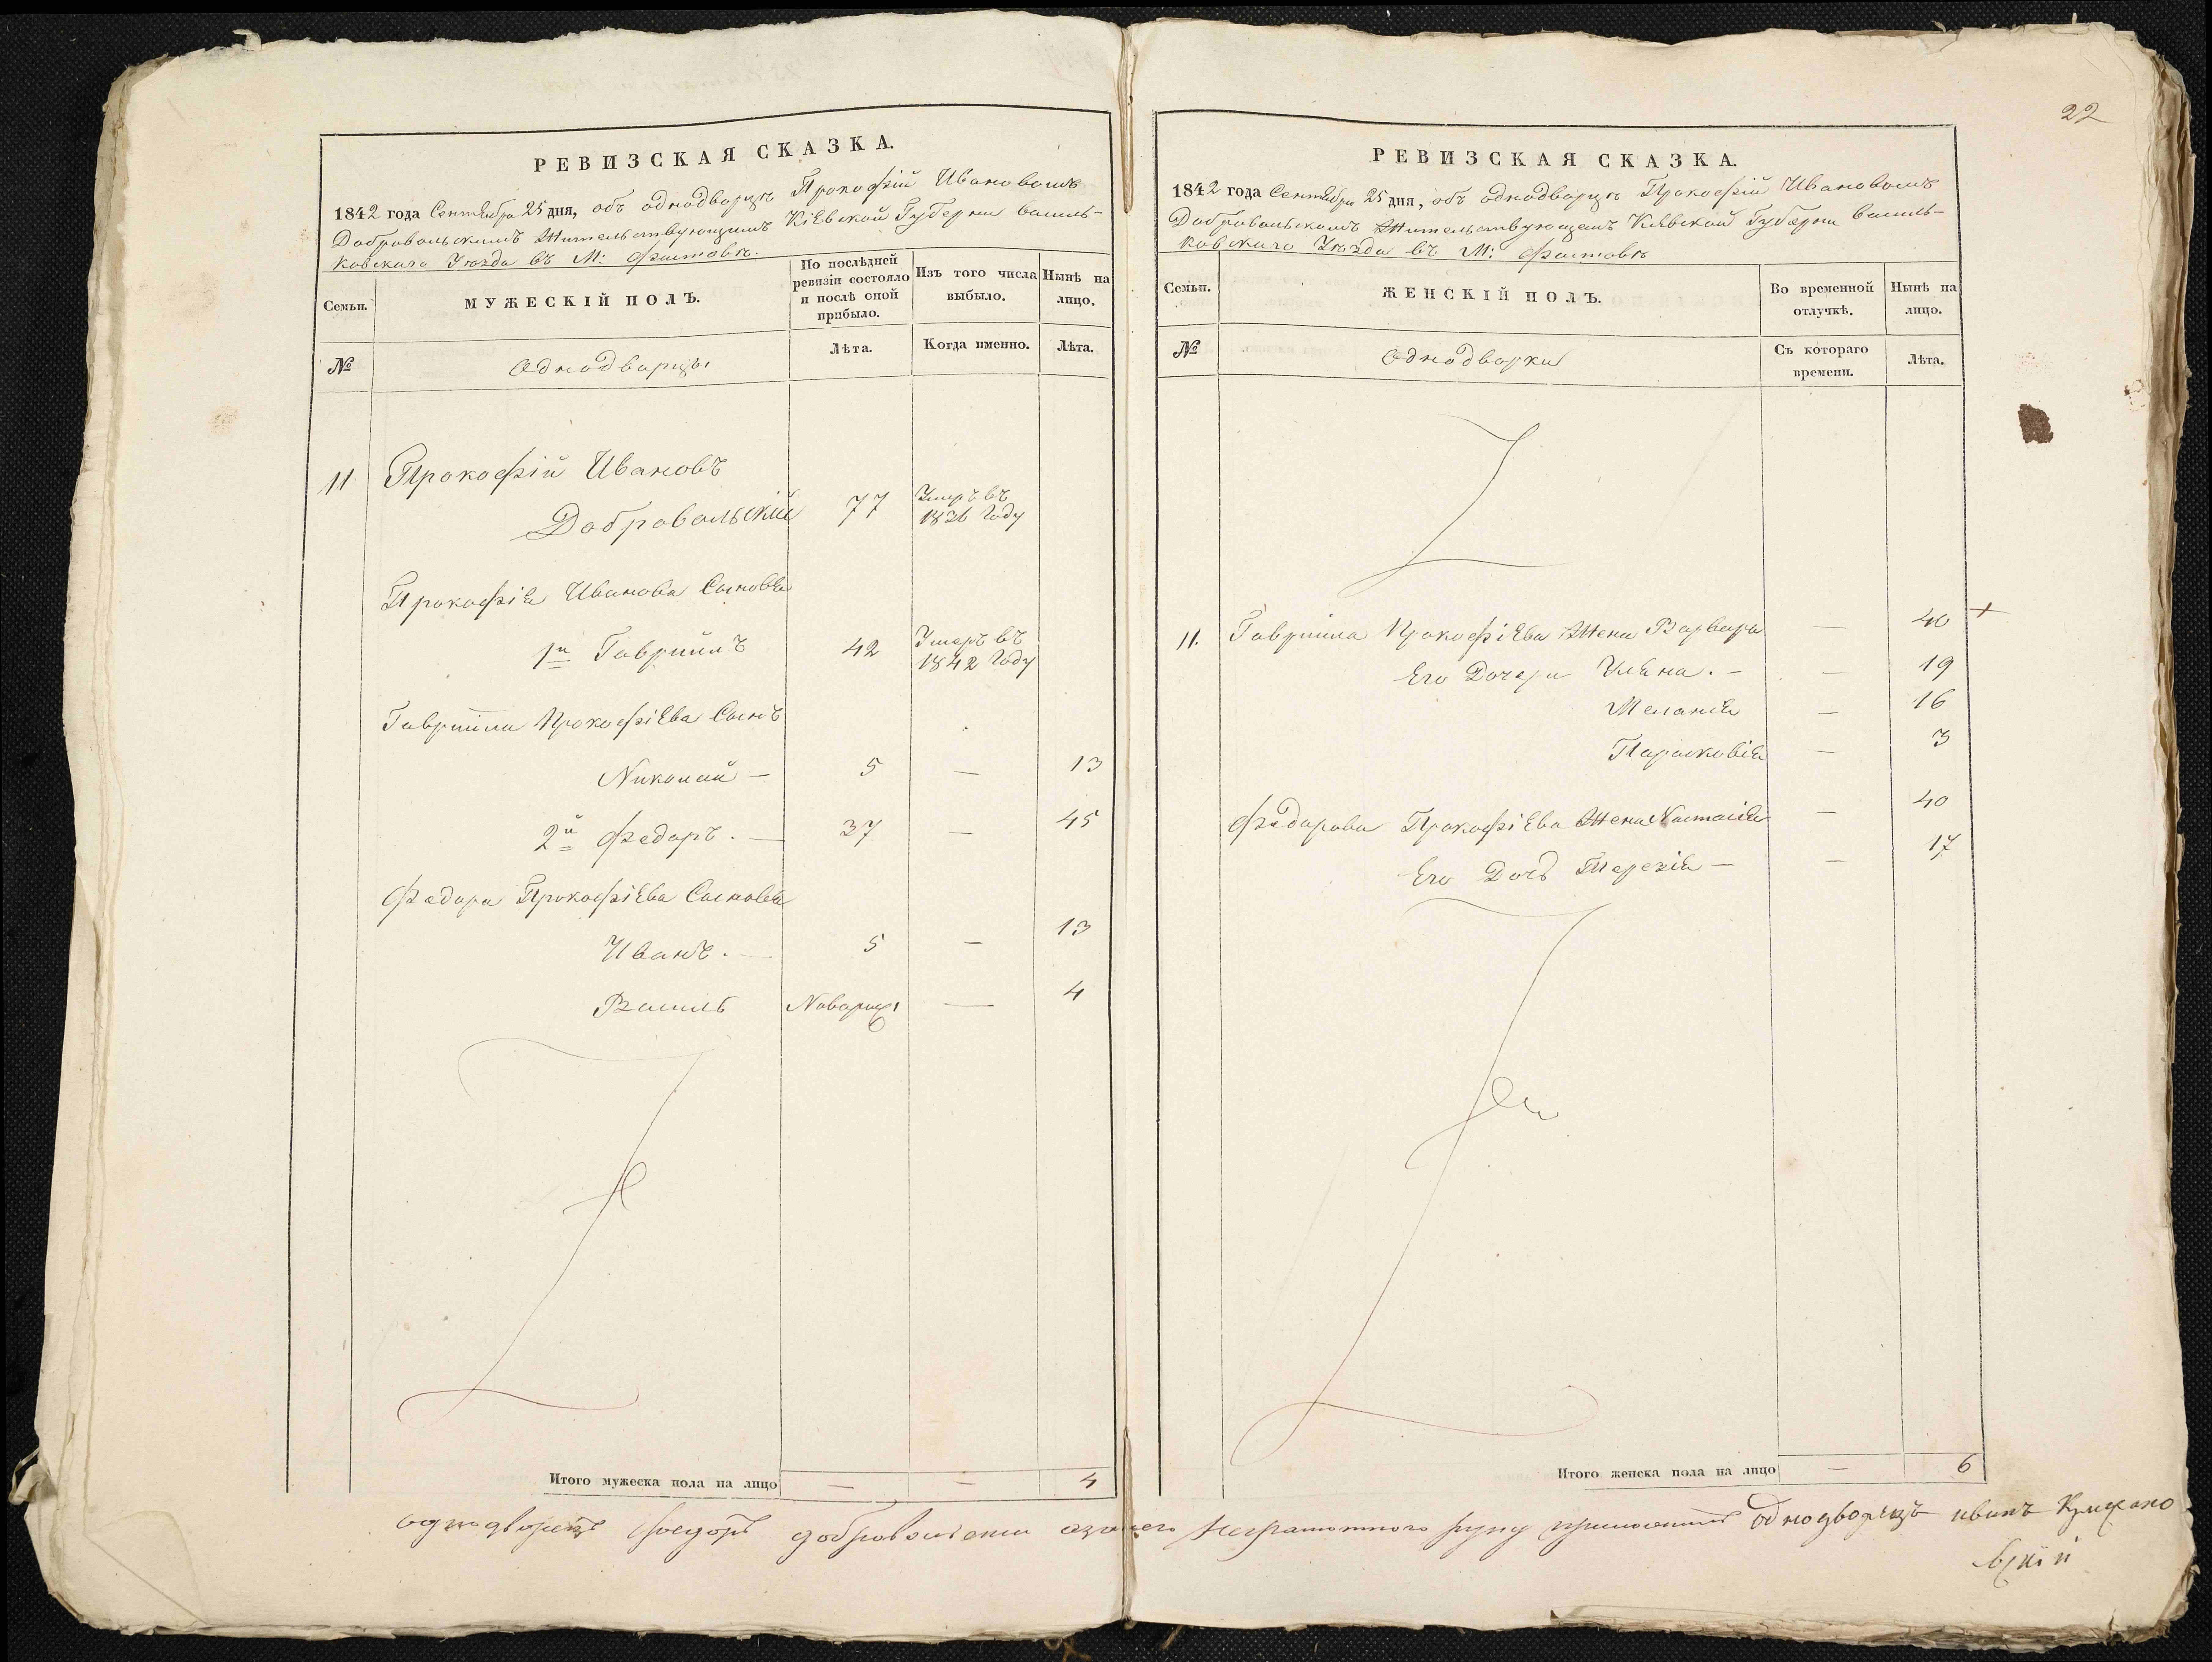 РЕВИЗСКАЯ СКАЗКА.
1842 года Сентября 25 дня, объ однодворцѣ Прокофій Ивановомъ
Добровольскимъ Жительствующимъ Кіевской Губерни василь-
ковскаго Уѣзда въ М: Фастовѣ.
Семьи.
МУЖЕСКІЙ ПОЛЪ.
По послѣдней
ревизіи состояло
и послѣ оной
прибыло.
Изъ того числа
выбыло.
Нынѣ на
лицо.
№
Однодворцы
Лѣта.
Когда именно.
Лѣта.
11 Прокофій Ивановъ
Добровольскій 77 Умеръ въ
1836 Году
Прокофія Иванова Сыновья
1й Гавріилъ 42 Умеръ въ
1842 Году
Гавріила Прокофіева Сынъ
Николай — 5 — 13
2й Федоръ. — 37 — 45
Федора Прокофіева Сыновья
Иванъ. — 5 — 13
Василь Новорож — 4
Итого мужеска пола на лицо — — 4
22
РЕВИЗСКАЯ СКАЗКА.
1842 года Сентября 25 дня, объ однодворцѣ Прокофій Ивановомъ
Добровольскомъ Жительствующемъ Кіевской Губерни василь-
ковскаго Уѣзда въ М: Фастовѣ
Семьи.
ЖЕНСКІЙ ПОЛЪ.
Во временной
отлучкѣ.
Нынѣ на
лицо.
№
Однодворки
Съ котораго
времени.
Лѣта.
11. Гавріила Прокофіева Жена Варвара — 40 +
Его Дочери Уляна. — — 19
Меланія — 16
Парасковія — 3
Федорова Прокофіева Жена Настасія — 40
Его Дочь Терезія — — 17
Итого женска пола на лицо — 6
однодворецъ Федоръ добровольски азанего неграмотного руку приложилъ однодворецъ иванъ